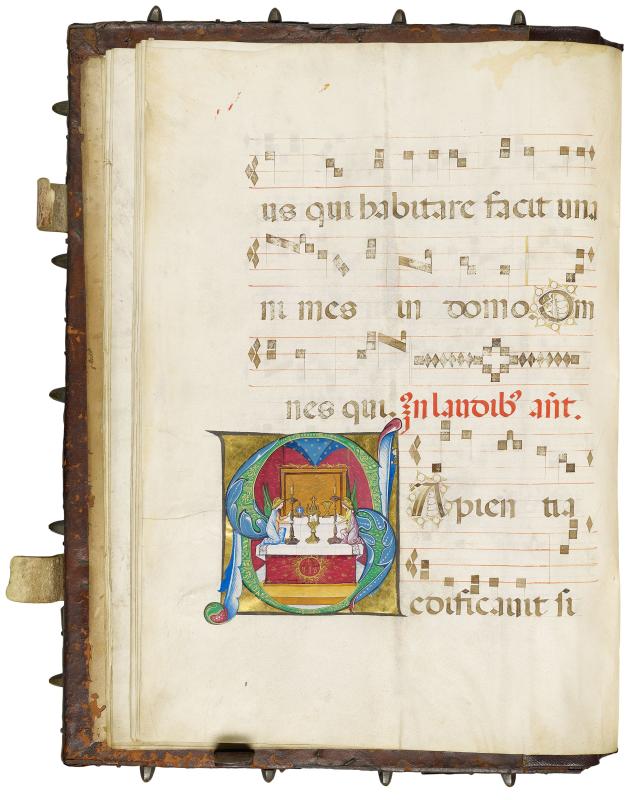 us qui habitare facit una
ni mes in domo. Om
nes qui. In laudib⁹ an̄t.
SApien tia
edificauit si